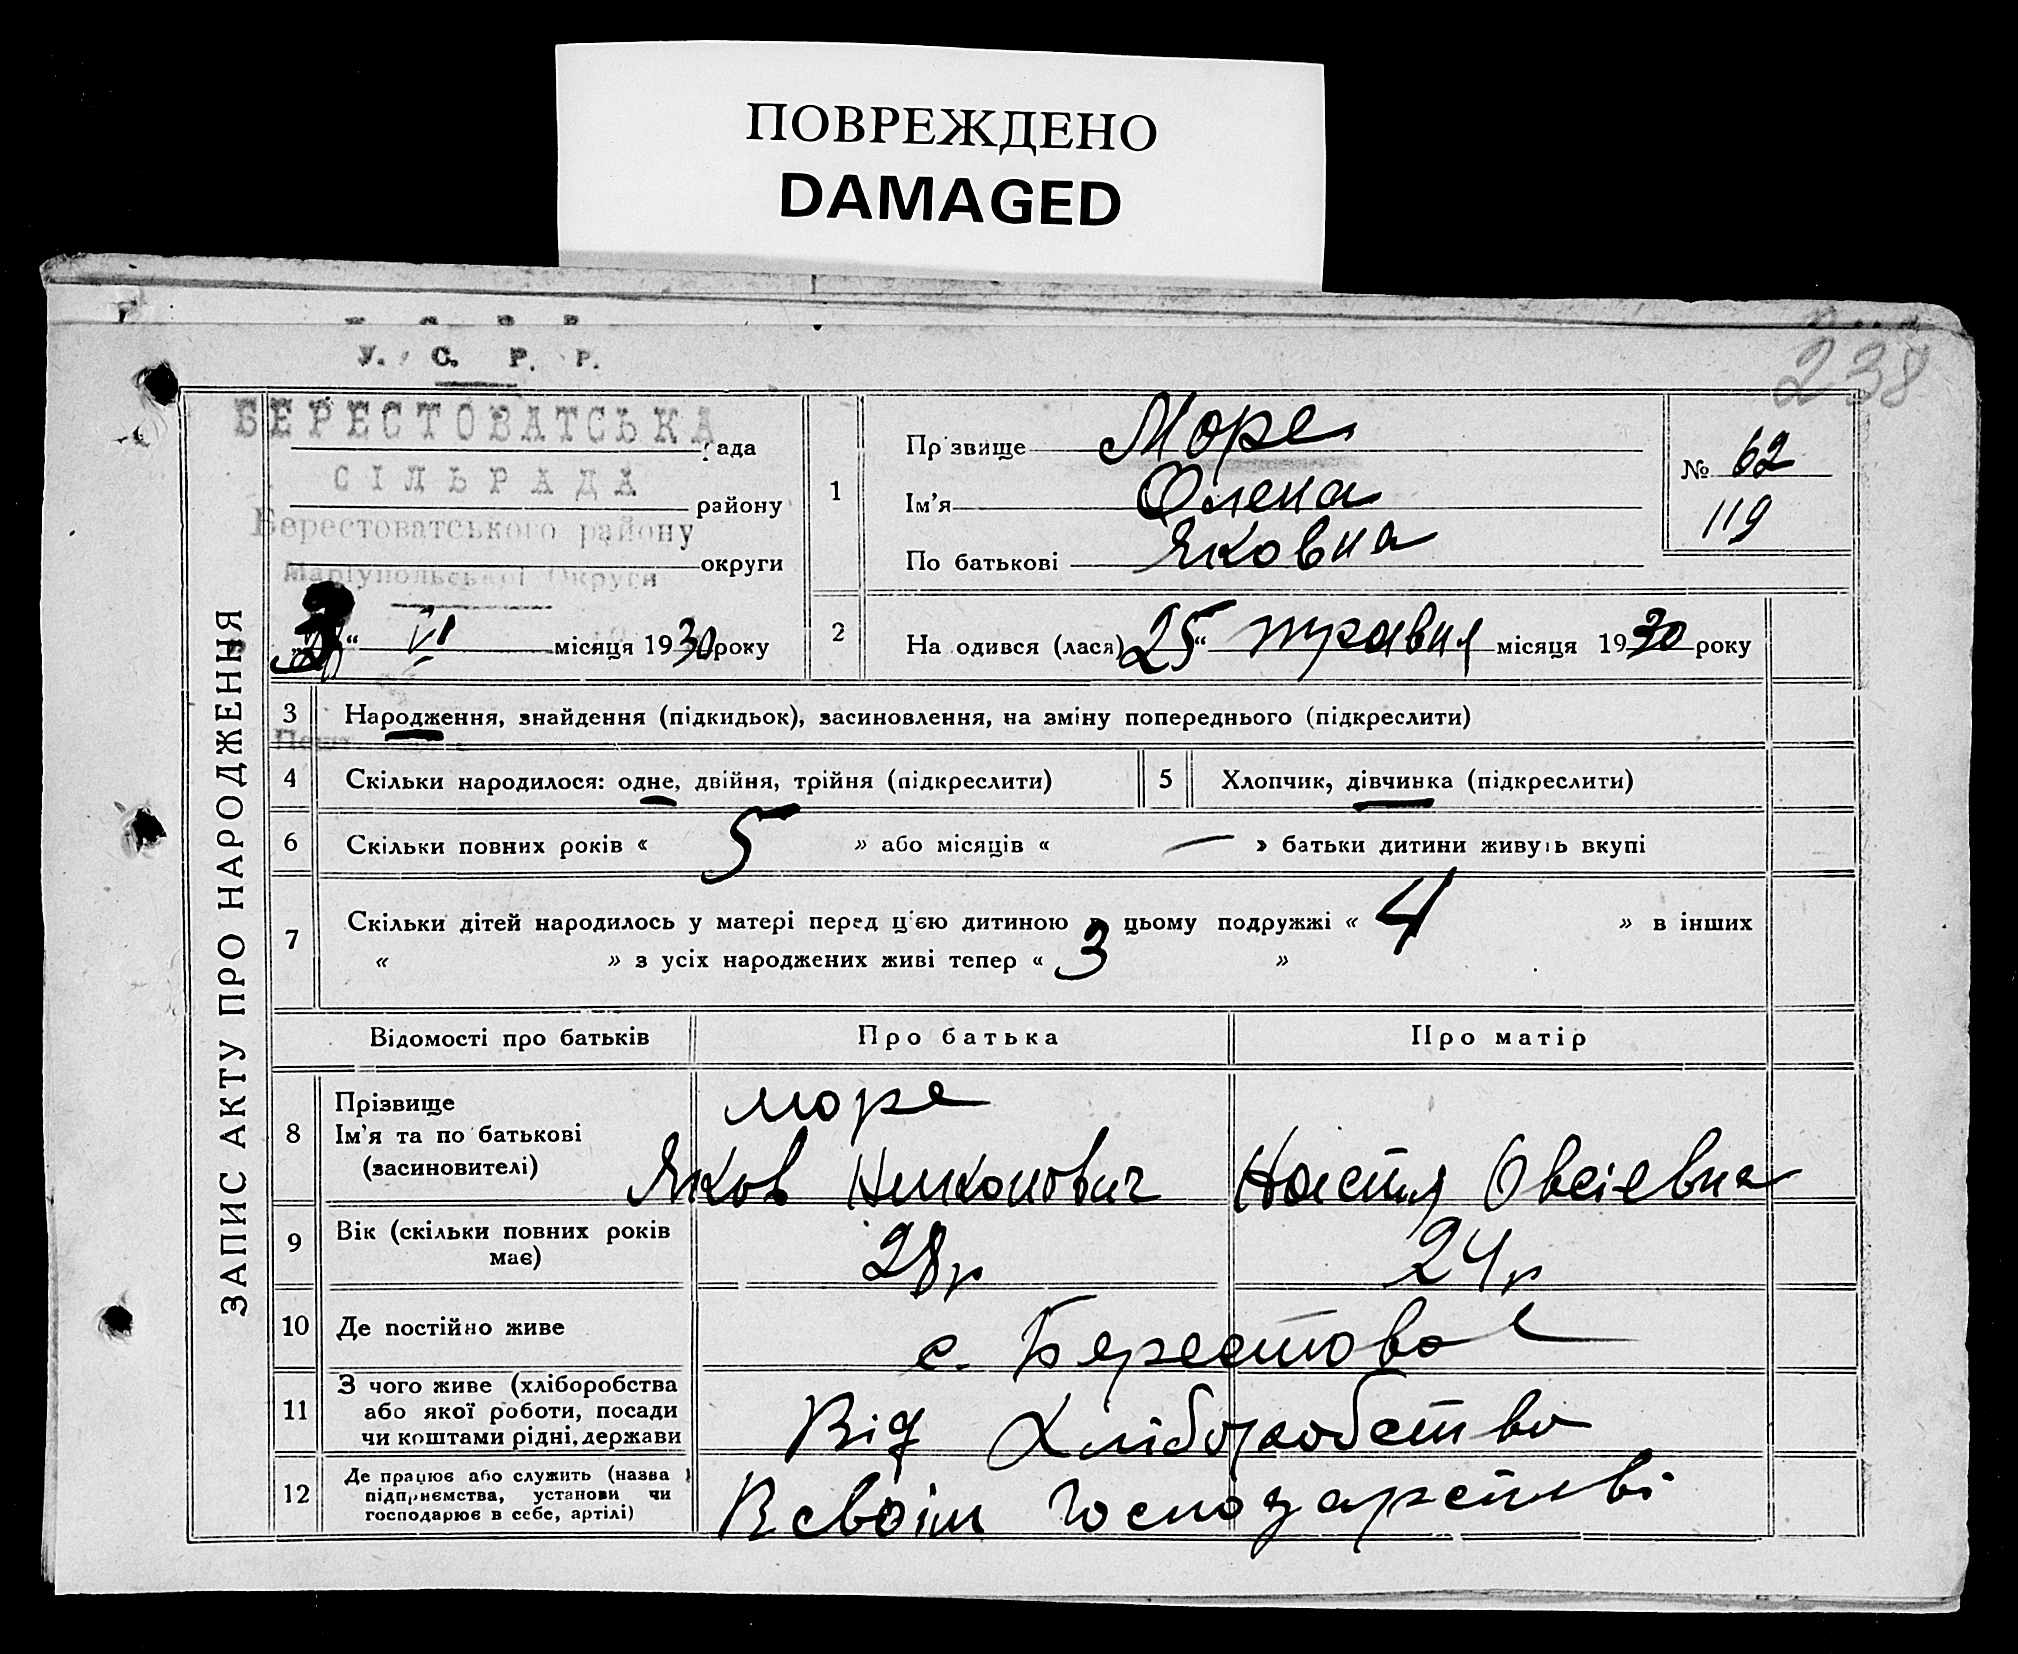 ПОВРЕЖДЕНО
DAMAGED
238
У. С. Р. Р.
БЕРЕСТОВАТСЬКА рада
СІЛЬРАДА району
Берестоватського району
округи
Маріупольської Округи
3 “ VI місяця 1930 року
ЗАПИС АКТУ ПРО НАРОДЖЕННЯ
1
Прізвище Море
Ім'я Олена
По батькові Яковна
№ 62
119
2 На одився (лася) 25 “ травня місяця 1930 року
3 Народження, знайдення (підкидьок), засиновлення, на зміну попереднього (підкреслити)
4 Скільки народилося: одне, двійня, трійня (підкреслити) 5 Хлопчик, дівчинка (підкреслити)
6 Скільки повних років « 5 » або місяців « — » батьки дитини живуть вкупі
7 Скільки дітей народилось у матері перед ц'єю дитиною в цьому подружжі « 4 » в інших
« » з усіх народжених живі тепер « 3 »
Відомості про батьків Про батька Про матір
8 Прізвище
Ім'я та по батькові
(засиновителі)
море
Яков Никонович Настя Овсіевна
9 Вік (скільки повних років
має)
28р 24р
10 Де постійно живе с. Берестовое
11 З чого живе (хліборобства
або якої роботи, посади
чи коштами рідні, держави
Від Хліборобства
12 Де працює або служить (назва
підприємства, установи чи
господарює в себе, артілі)
В своім господарстві